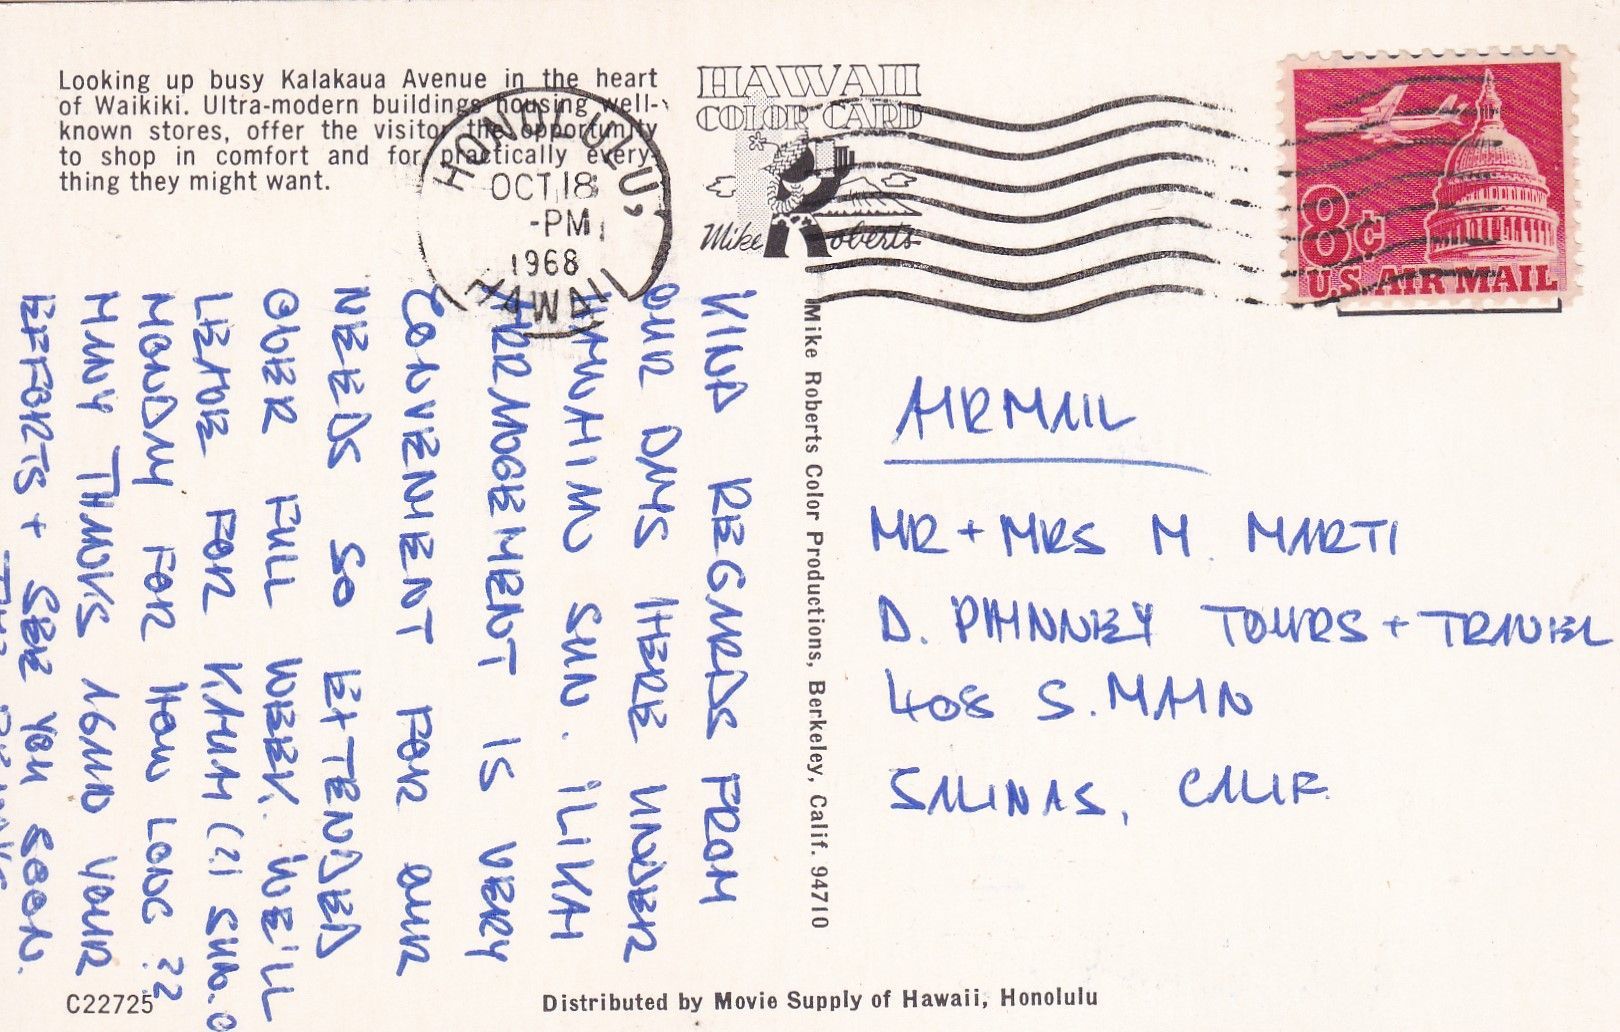 Looking up busy Kalakaua Avenue in the heart
of Waikiki. Ultra-modern buildings housing well-
known stores, offer the visitor the opportunity
to shop in comfort and for practically every-
thing they might want.
HONOLULU,
OCT 18
-PM
1968
HAWAII
HAWAII
COLOR CARD
Mike Roberts
8¢
U.S. AIR MAIL
KIND REGARDS FROM
OUR DAYS HERE UNDER
HAWAIIAN SUN. ILIKAI
ARRANGEMENT IS VERY
CONVENIENT FOR OUR
NEEDS SO EXTENDED
OVER FULL WEEK. WE'LL
LEAVE FOR KAUAI (?) SUN. O
MONDAY FOR HOW LONG ??
MANY THANKS AGAIN YOUR
EFFORTS + SEE YOU SOON.
Mike Roberts Color Productions, Berkeley, Calif. 94710
AIRMAIL
MR + MRS M. MARTI
D. PHINNEY TOURS + TRAVEL
408 S. MAIN
SALINAS, CALIF.
C22725
Distributed by Movie Supply of Hawaii, Honolulu